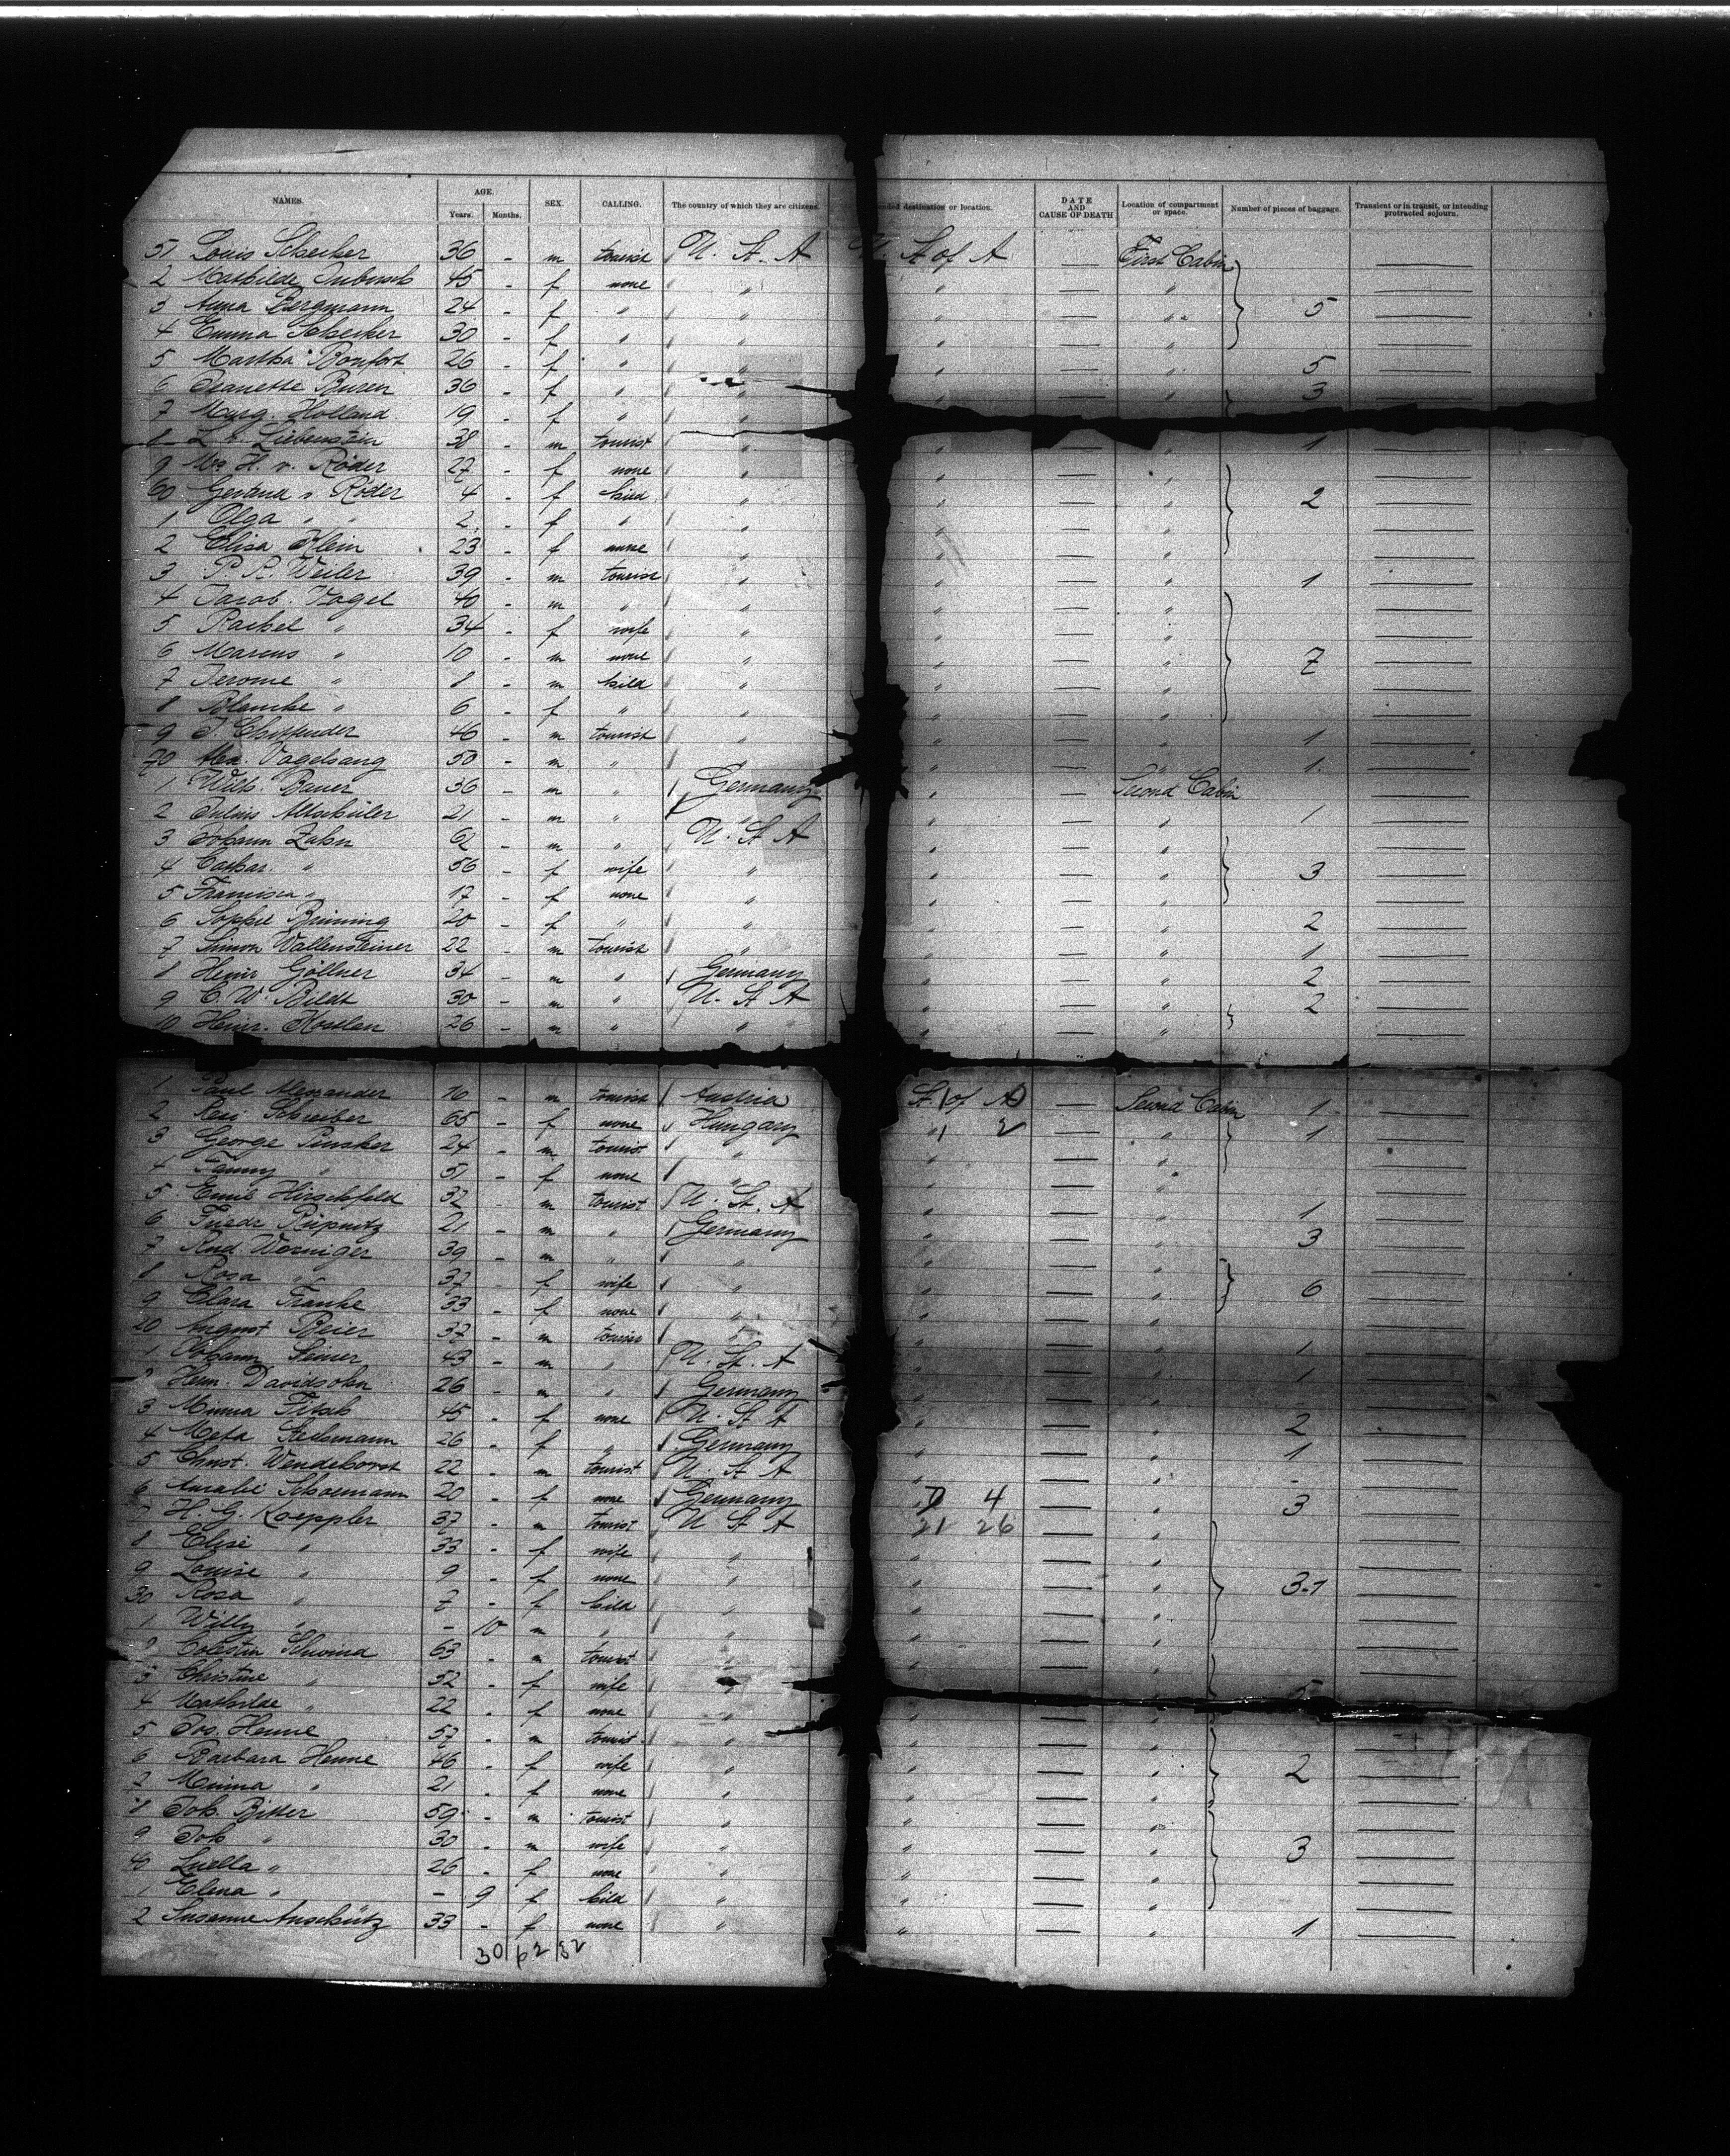 NAMES. AGE. Years. Months. SEX. CALLING. The country of which they are citizens. nded destination or location. DATE AND CAUSE OF DEATH Location of compartment or space. Number of pieces of baggage. Transient or in transit, or intending protracted sojourn.
51 Louis Scheeker 36 - m tourist U. St. A U. St of A — First Cabin —
2 Mathilde 45 - f none " " — " —
3 Anna Bergmann 24 - f " " " — " 5 —
4 Emma Scheeker 30 - f " " " — " —
5 Martha Bonfort 26 - f " " " — " 5 —
6 Jeanette Buren 36 - f " " " — " 3 —
7 Marg. Holland 19 - f " " "
8 L. v. Liebenstein 38 - m tourist " " — " 1 —
9 Mrs H. v. Röder 27 - f none " " — " —
60 Gertrud v Röder 4 - f child " " — " 2 —
1 Olga " " 2 - f " " " — " —
2 Elisa Klein 23 - f nurse " " — " —
3 P. R. Weiler 39 - m tourist " " — " 1 —
4 Jacob Vogel 40 - m " " " — " —
5 Rachel " 34 - f wife " " — " —
6 Marcus " 10 - m none " " — " 7 —
7 Jerome " 8 - m child " " — " —
8 Blanche " 6 - f " " " — " —
9 J. Chittender 46 - m tourist " " — " 1 —
70 Alex. Vogelsang 50 - m " " " — " 1 —
1 Wilh. Bauer 36 - m " Germany " — Second Cabin —
2 Julius Altschüler 21 - m " " " — " 1 —
3 Johann Zahn 62 - m " U. St A " — " —
4 Cathar. " 56 - f wife " " — " 3 —
5 Francisca " 17 - f none " " — " —
6 Sophie Brüning 20 - f " " " — " 2 —
7 Simon Wallensteiner 22 - m tourist " " — " 1 —
8 Heinr Göllner 34 - m " Germany " — " 2 —
9 C. W. Bildt 30 - m " U. St A " — " 2 —
10 Heinr. Kosllan 26 - m " " " — " —
1 Paul Alexander 16 - m tourist Austria St. of A — Second Cabin 1 —
2 Resi Schreiber 65 - f none Hungary " 1 2 — " 1 —
3 George Pinsker 24 - m tourist " " — " —
4 Fanny " 51 - f none " " — " —
5 Emil Hirschfeld 32 - m tourist U. St. A " — " 1 —
6 Friedr Ripnitz 21 - m " Germany " — " 3 —
7 Rud Werniger 39 - m " " " — " —
8 Rosa " 37 - f wife " " — " 6 —
9 Clara Franke 33 - f none " " — " —
20 August Beier 37 - m tourist " " — " 1 —
1 Johann Seiner 43 - m " U. St. A " — " 1 —
2 Herm. Davidsohn 26 - m " Germany " — " —
3 Minna 45 - f none U. St A " — " 2 —
4 Meta Stedemann 26 - f " Germany " — " 1 —
5 Christ. Wendehorst 22 - m tourist U. St A " — " - —
6 Amalie Schoemann 20 - f none Germany 7 4 — " 3 —
7 H. G. Kaeppler 37 - m tourist U St A 21 26 — " —
8 Elise " 33 - f wife " " — " —
9 Louise " 9 - f none " " — " 3-1 —
30 Rosa " 7 - f child " " — " —
1 Willy " - 10 m " " " — " —
2 Colestin Schwind 63 - m tourist " " — " —
3 Christine " 52 - f wife " " — " 5 —
4 Mathilde " 22 - f none " " — " —
5 Jos. Henne 57 - m tourist " " — " —
6 Barbara Henne 46 - f wife " " — " 2 —
7 Minna " 21 - f none " " — " —
8 Joh. Bitter 59 - m tourist " " — " —
9 Joh " 30 - m wife " " — " 3 —
40 Luella " 26 - f none " " — " —
1 Elena " - 9 f child " " — " —
2 Susanne Anschütz 33 - f none " " — " 1 —
30 62 52